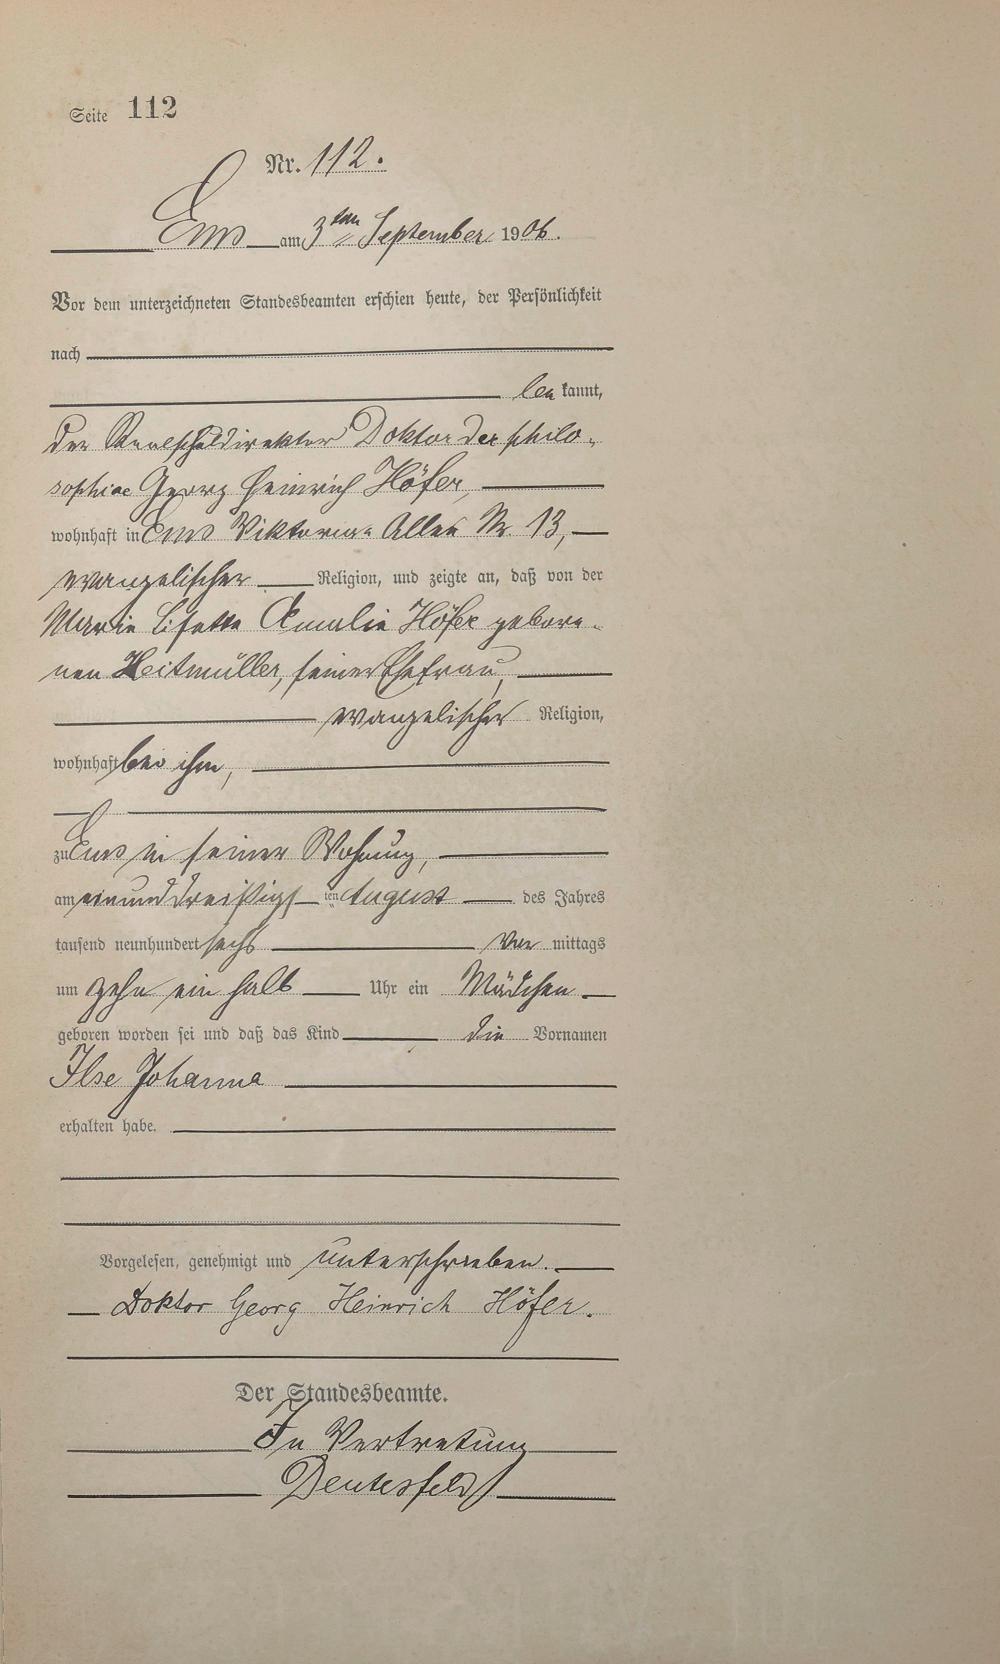 Seite 112
Nr. 112.
Ems am 3ten September 1906.
Vor dem unterzeichneten Standesbeamten erschien heute, der Persönlichkeit
nach
be kannt,
der Realschuldirektor Doktor der philo-
sophiae Georg Heinrich Höfer,
wohnhaft in Ems Viktoria-Allee Nr. 13,
evangelischer Religion, und zeigte an, daß von der
Marie Lisette Amalie Höfer gebore-
nen Heitmüller, seiner Ehefrau,
evangelischer Religion,
wohnhaft bei ihm,
zu Ems in seiner Wohnung,
am einunddreißigsten August des Jahres
tausend neunhundert sechs Vor mittags
um zehn ein halb Uhr ein Mädchen
geboren worden sei und daß das Kind die Vornamen
Ilse Johanna
erhalten habe.
Vorgelesen, genehmigt und unterschrieben.
Doktor Georg Heinrich Höfer.
Der Standesbeamte.
In Vertretung